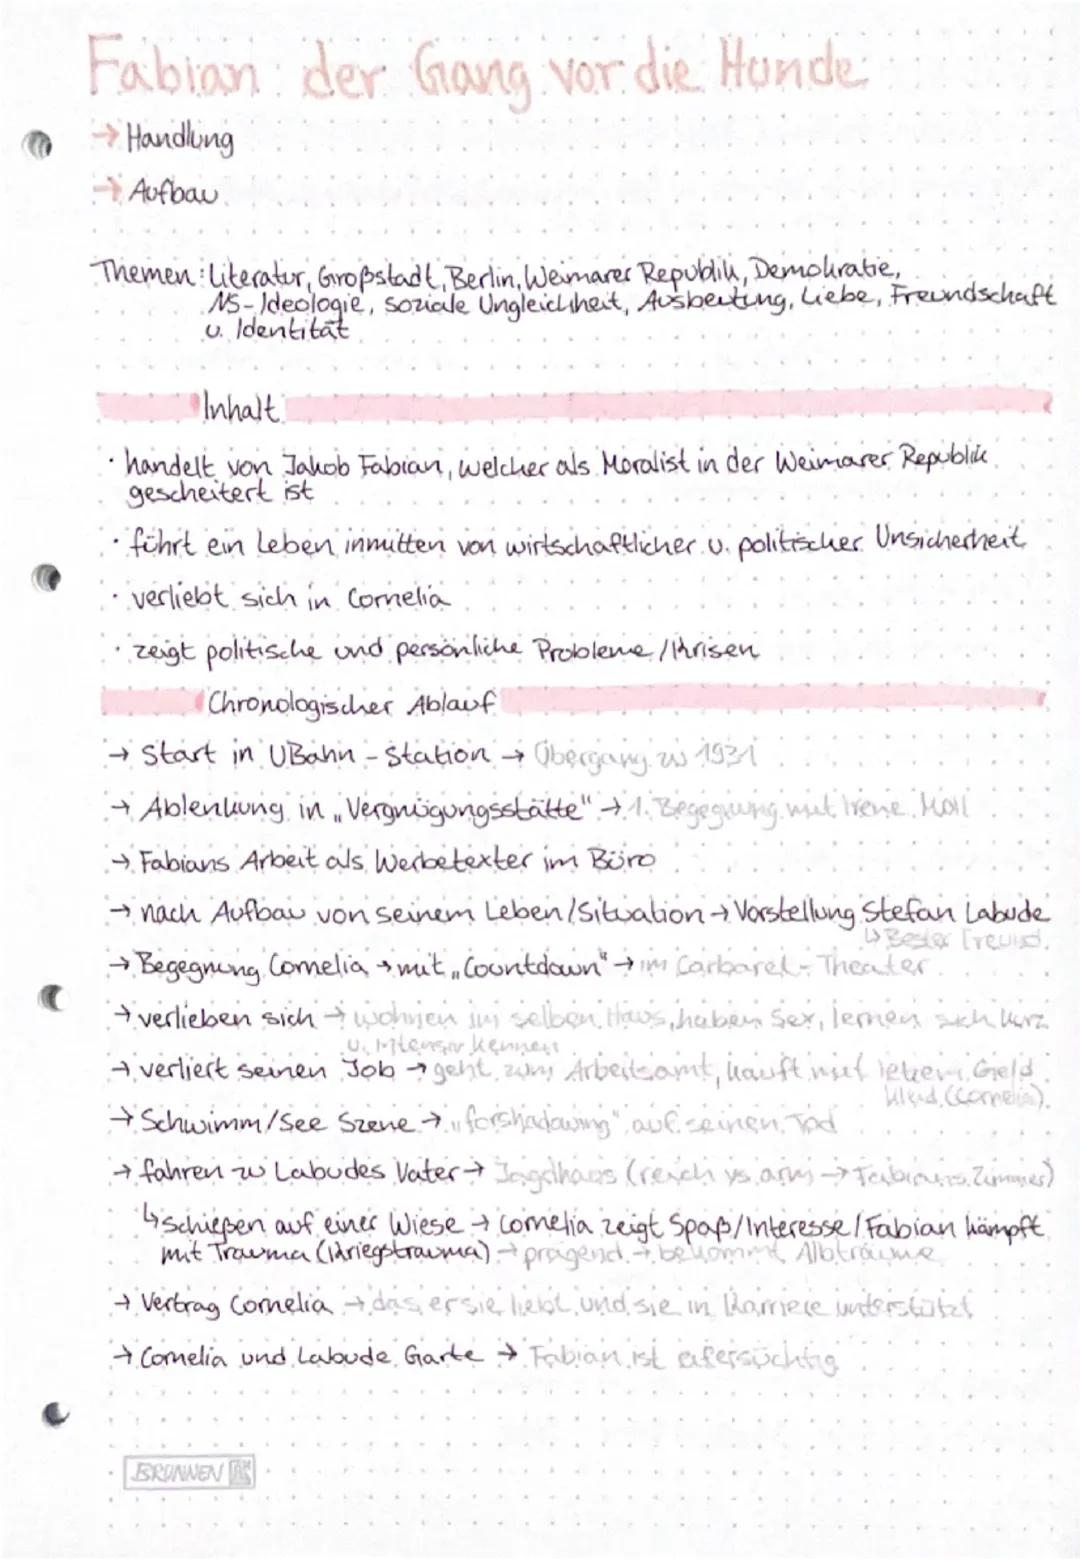 Fabian: der Gang vor die Hunde
→ Handlung
→ Aufbau
Themen: Literatur, Großstadt, Berlin, Weimarer Republik, Demokratie,
NS-Ideologie, soziale Ungleichheit, Ausbeutung, Liebe, Freundschaft
u. Identität
Inhalt
· handelt von Jakob Fabian, welcher als Moralist in der Weimarer Republik
gescheitert ist
· führt ein Leben inmitten von wirtschaftlicher u. politischer Unsicherheit
· verliebt sich in Cornelia
· zeigt politische und persönliche Probleme/Krisen
Chronologischer Ablauf
→ Start in UBahn-Station → Übergang zu 1931
→ Ablenkung in „Vergnügungsstätte" → 1. Begegnung mit Irene Moll
→ Fabians Arbeit als Werbetexter im Büro
→ nach Aufbau von seinem Leben/Situation → Vorstellung Stefan Labude
↳ Bester Freund
→ Begegnung Cornelia → mit „Countdown" → im Carbaret-Theater
→ verlieben sich → wohnen im selben Haus, haben Sex, lernen sich kurz
u. intensiv kennen
→ verliert seinen Job → geht zum Arbeitsamt, kauft mit letztem Geld
Kleid (Cornelia)
→ Schwimm/See Szene → „forshadowing" auf seinen Tod
→ fahren zu Labudes Vater → Jagdhaus (reich vs. arm → Fabians Zimmer)
↳ schießen auf einer Wiese → Cornelia zeigt Spaß/Interesse/Fabian kämpft
mit Trauma (Kriegstrauma) → prägend → bekommt Albträume
→ Vertrag Cornelia → das er sie liebt und sie in Karriere unterstützt
→ Cornelia und Labude Garte → Fabian ist eifersüchtig
BRUNNEN